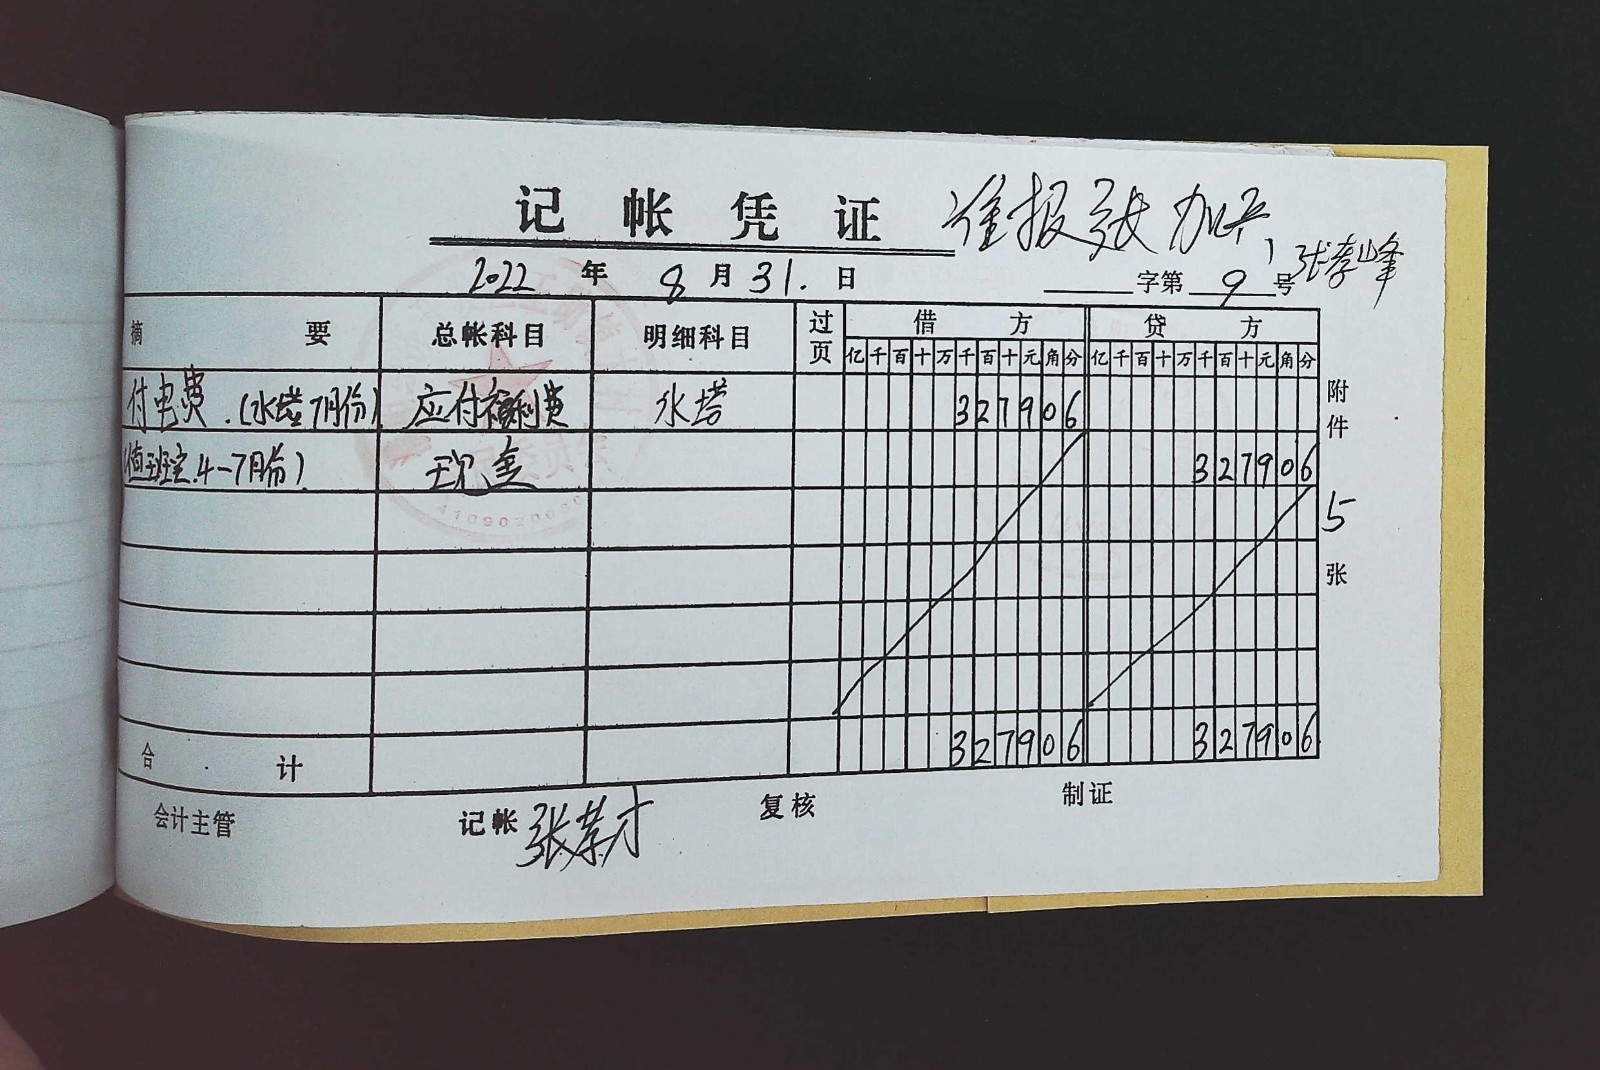 记帐凭证 准报 张
2022年8月31.日 字第9号 张孝峰
摘要 总帐科目 明细科目 过页 借方 贷方
亿千百十万千百十元角分 亿千百十万千百十元角分
付电费.(水塔7月份) 应付福利费 水塔 327906
(值班室.4-7月份) 现金 327906
附件5张
合计 327906 327906
会计主管 记帐 张孝才 复核 制证